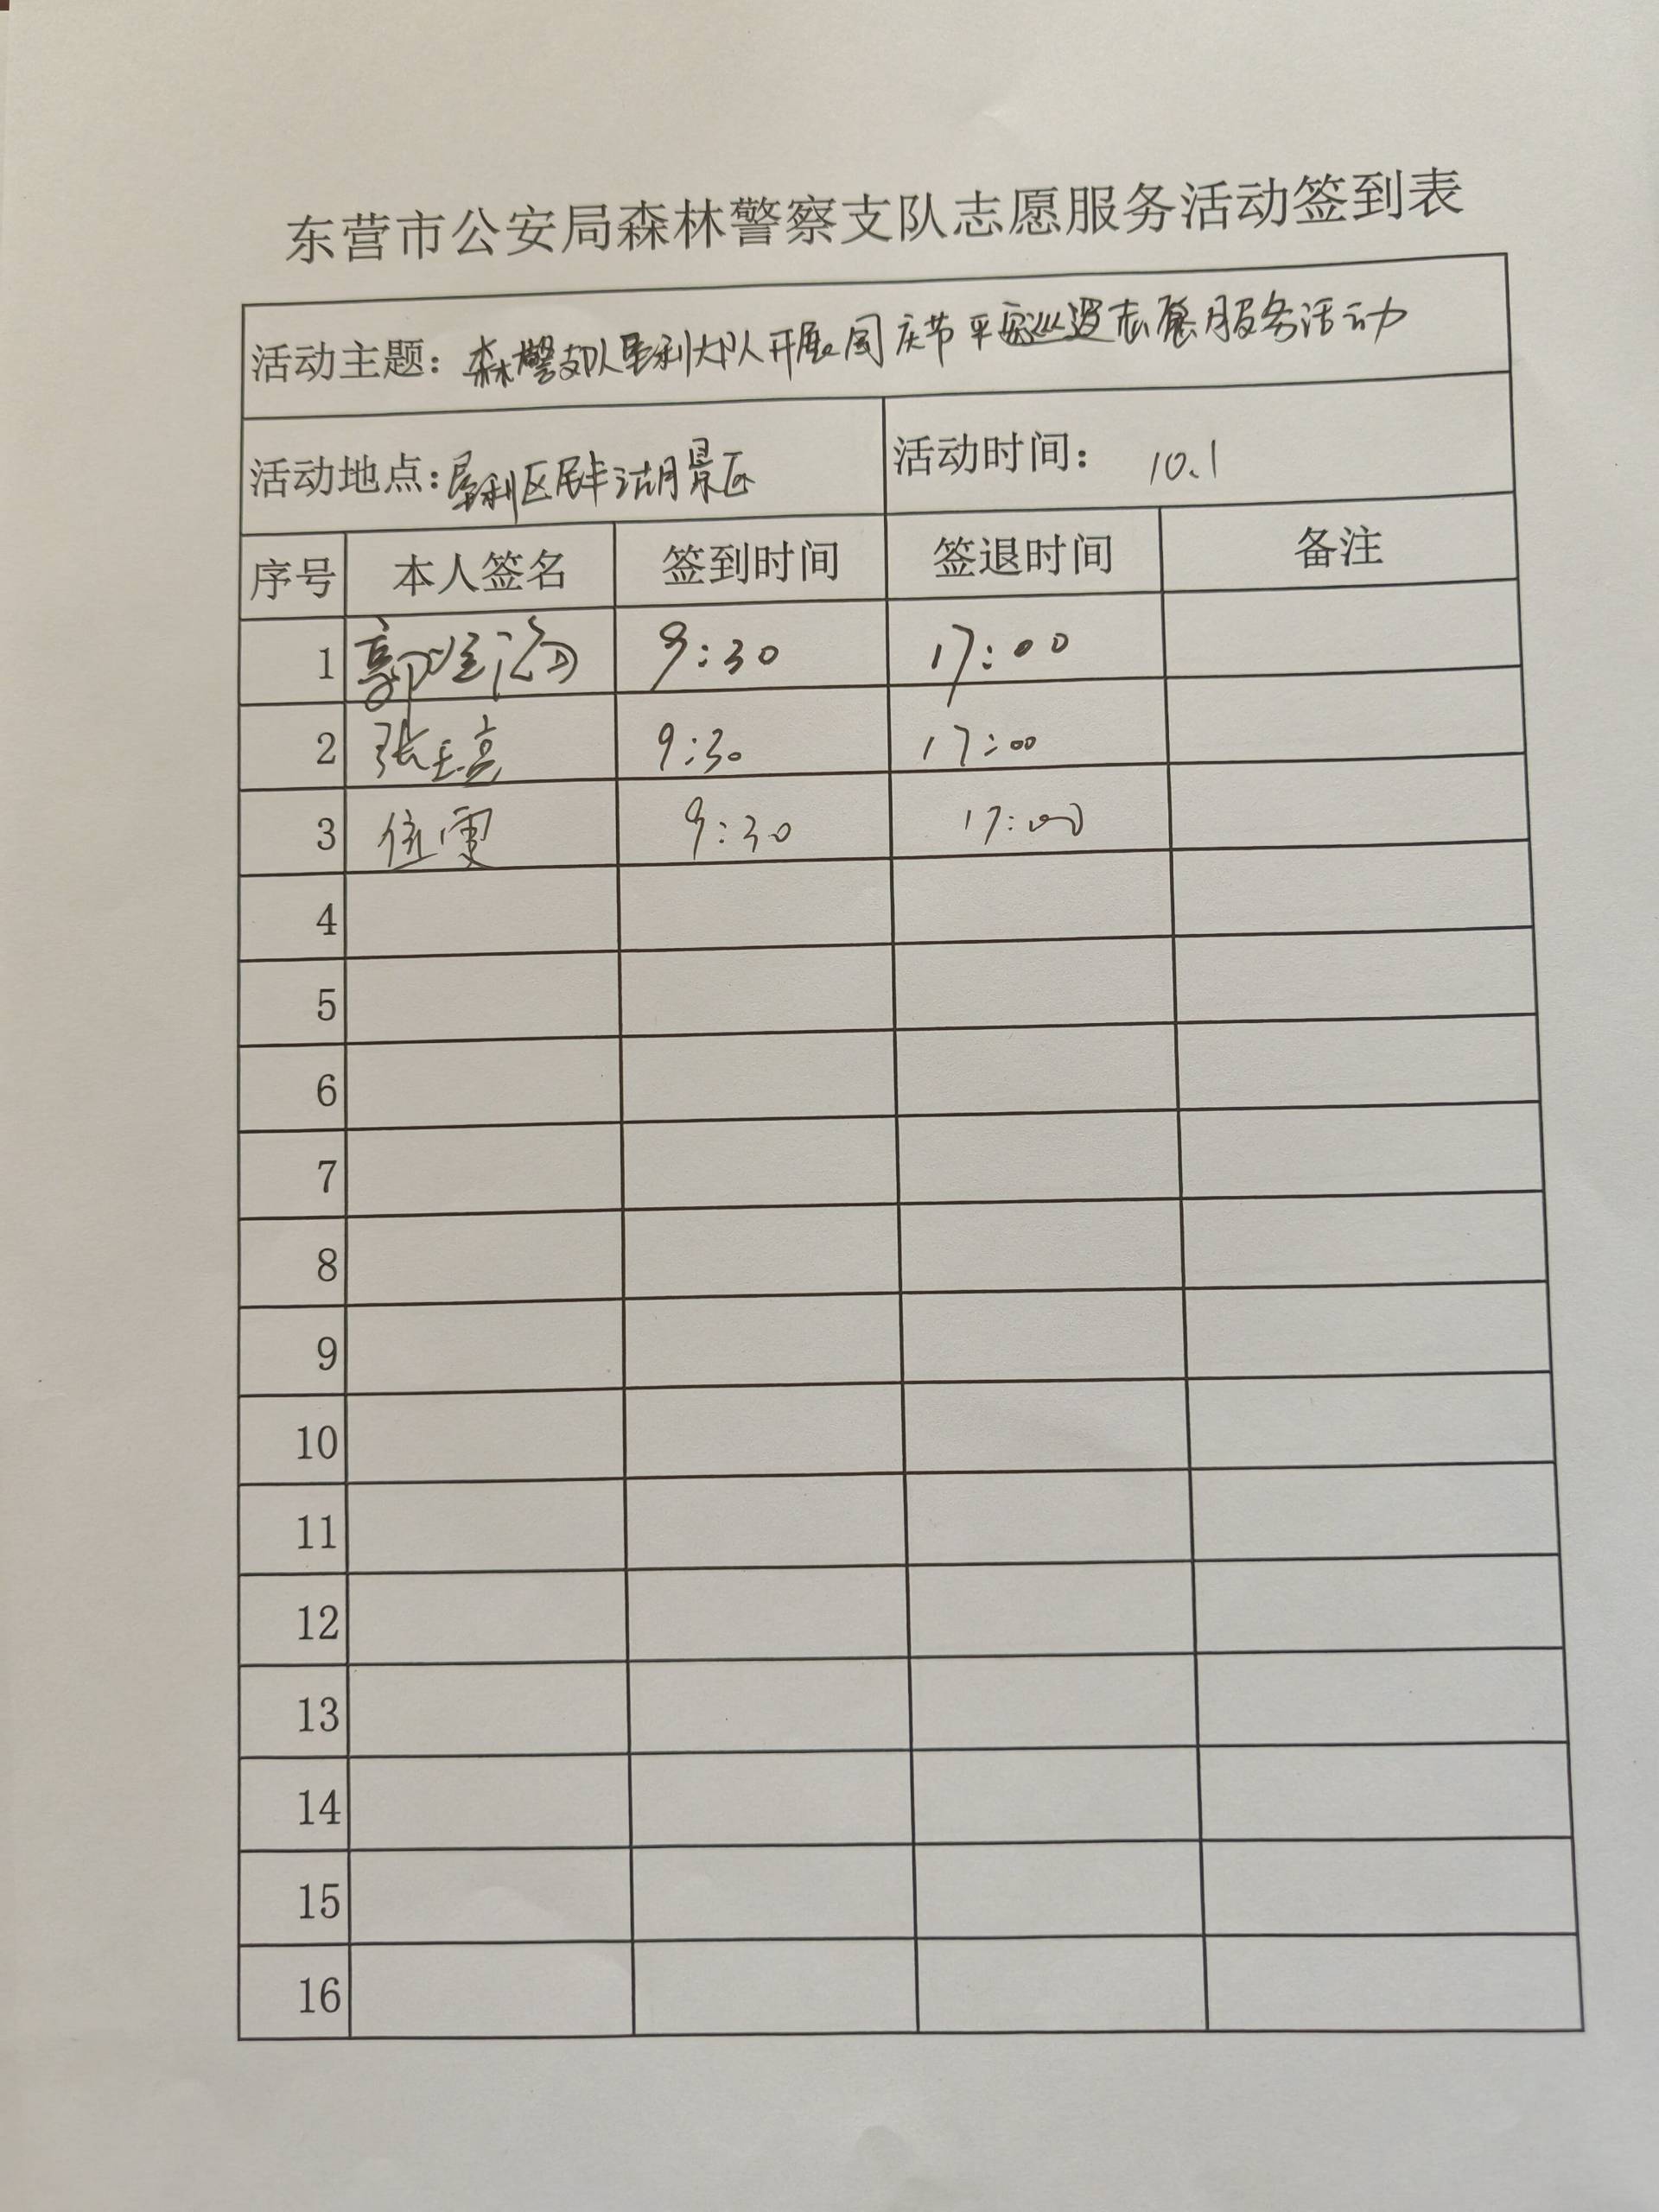 东营市公安局森林警察支队志愿服务活动签到表
活动主题：森警支队垦利大队开展国庆节平安巡逻志愿服务活动
活动地点：垦利区民丰湖景区 活动时间： 10.1
序号 本人签名 签到时间 签退时间 备注
1 郭 海 9:30 17:00
2 张 亮 9:30 17:00
3 9:30 17:00
4
5
6
7
8
9
10
11
12
13
14
15
16